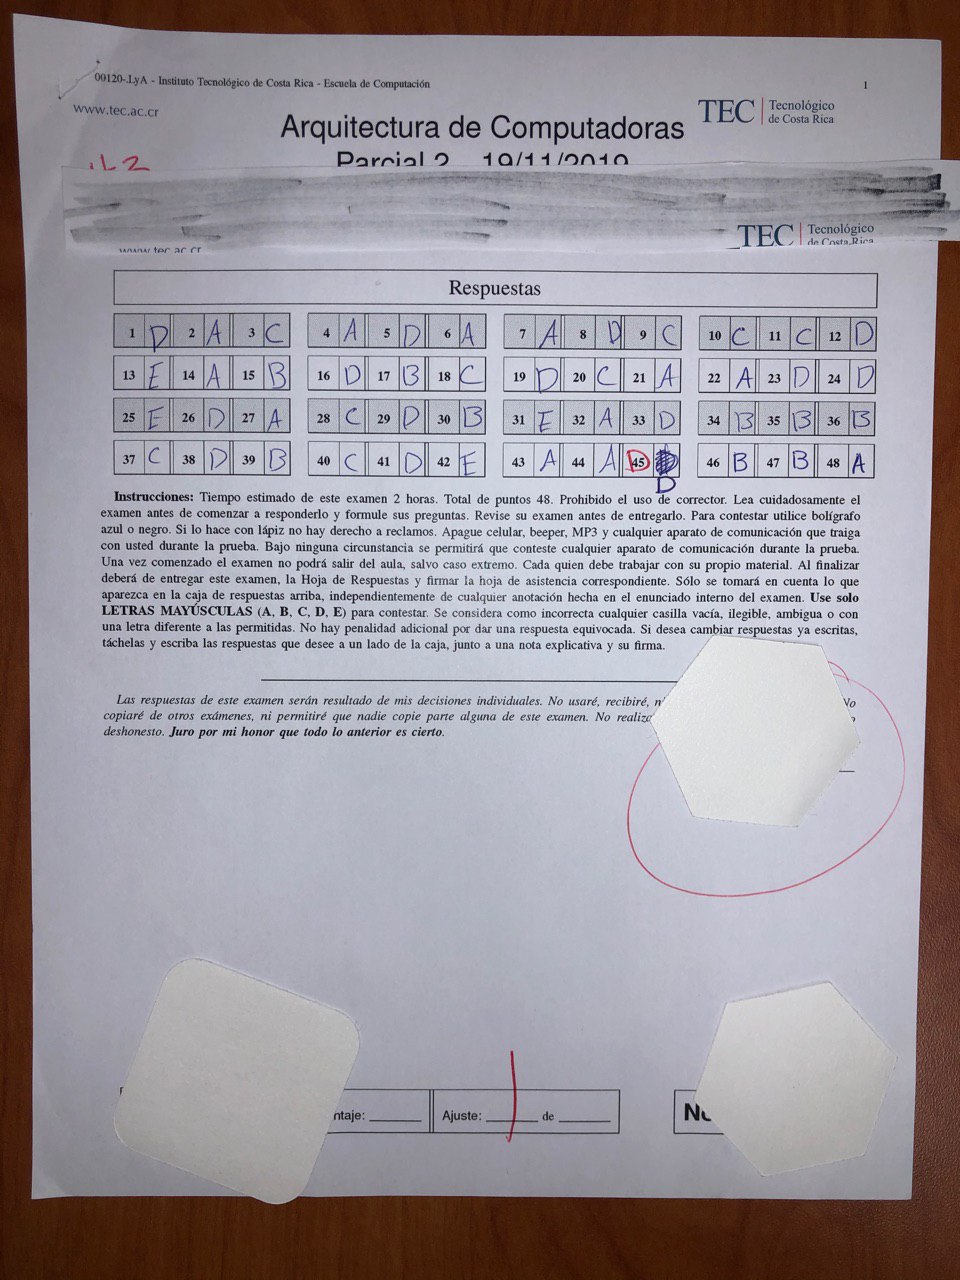 09120-J.yA - Instituto Tecnológico de Costa Rica - Escuela de Computación 1
www.tec.ac.cr
TEC | Tecnológico de Costa Rica
Arquitectura de Computadoras
Parcial 2 19/11/2019
TEC | Tecnológico de Costa Rica
www.tec.ac.cr
Respuestas
1 D 2 A 3 C 4 A 5 D 6 A 7 A 8 D 9 C 10 C 11 C 12 D
13 E 14 A 15 B 16 D 17 B 18 C 19 D 20 C 21 A 22 A 23 D 24 D
25 E 26 D 27 A 28 C 29 D 30 B 31 E 32 A 33 D 34 B 35 B 36 B
37 C 38 D 39 B 40 C 41 D 42 E 43 A 44 A D 45 46 B 47 B 48 A
D
Instrucciones: Tiempo estimado de este examen 2 horas. Total de puntos 48. Prohibido el uso de corrector. Lea cuidadosamente el
examen antes de comenzar a responderlo y formule sus preguntas. Revise su examen antes de entregarlo. Para contestar utilice bolígrafo
azul o negro. Si lo hace con lápiz no hay derecho a reclamos. Apague celular, beeper, MP3 y cualquier aparato de comunicación que traiga
con usted durante la prueba. Bajo ninguna circunstancia se permitirá que conteste cualquier aparato de comunicación durante la prueba.
Una vez comenzado el examen no podrá salir del aula, salvo caso extremo. Cada quien debe trabajar con su propio material. Al finalizar
deberá de entregar este examen, la Hoja de Respuestas y firmar la hoja de asistencia correspondiente. Sólo se tomará en cuenta lo que
aparezca en la caja de respuestas arriba, independientemente de cualquier anotación hecha en el enunciado interno del examen. Use solo
LETRAS MAYÚSCULAS (A, B, C, D, E) para contestar. Se considera como incorrecta cualquier casilla vacía, ilegible, ambigua o con
una letra diferente a las permitidas. No hay penalidad adicional por dar una respuesta equivocada. Si desea cambiar respuestas ya escritas,
táchelas y escriba las respuestas que desee a un lado de la caja, junto a una nota explicativa y su firma.
Las respuestas de este examen serán resultado de mis decisiones individuales. No usaré, recibiré, No
copiaré de otros exámenes, ni permitiré que nadie copie parte alguna de este examen. No
deshonesto. Juro por mi honor que todo lo anterior es cierto.
ntaje: Ajuste: de